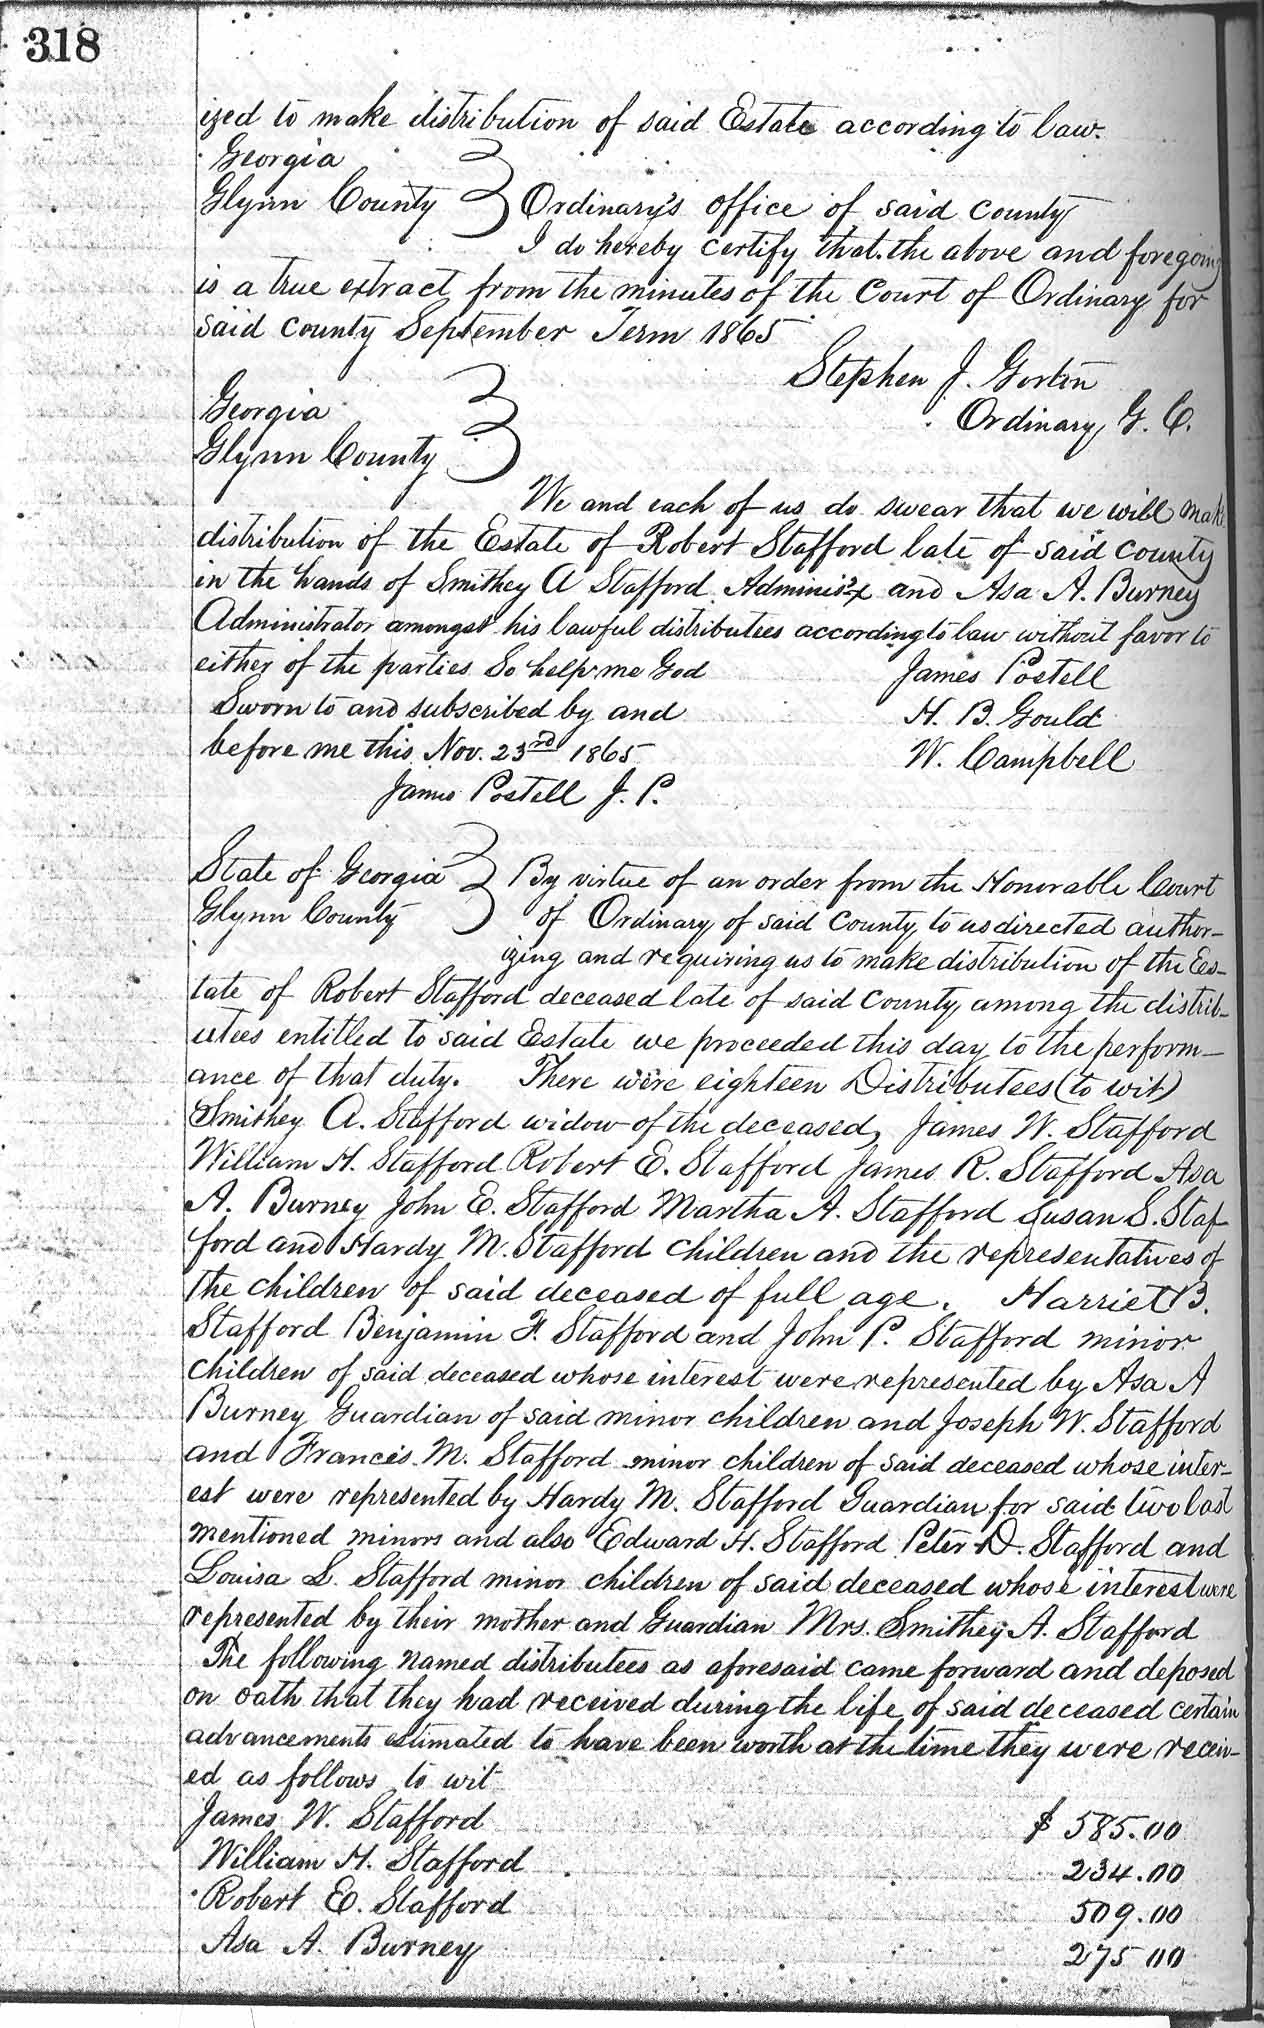 318
ized to make distribution of said Estate according to law.
Georgia
Glynn County } Ordinary's office of said county
I do hereby certify that the above and foregoing
is a true extract from the minutes of the Court of Ordinary for
said county September Term 1865
Stephen J. Gorton
Ordinary, G. C.
Georgia
Glynn County }
We and each of us do swear that we will make
distribution of the Estate of Robert Stafford late of said county
in the hands of Smithey A Stafford Adminis'x and Asa A. Burney
Administrator amongst his lawful distributees according to law without favor to
either of the parties So help me God
James Postell
Sworn to and subscribed by and
H. B. Gould
before me this Nov. 23rd 1865
W. Campbell
James Postell J. P.
State of Georgia } By virtue of an order from the Honorable Court
Glynn County of Ordinary of said county to us directed author-
izing and requiring us to make distribution of the Es-
tate of Robert Stafford deceased late of said county among the distrib-
utees entitled to said Estate we proceeded this day to the perform-
ance of that duty. There were eighteen Distributees (to wit)
Smithey A. Stafford widow of the deceased, James W. Stafford
William H. Stafford Robert E. Stafford James R. Stafford Asa
A. Burney John E. Stafford Martha A. Stafford Susan S. Staf-
ford and Hardy M. Stafford children and the representatives of
the children of said deceased of full age. Harriet B.
Stafford Benjamin F. Stafford and John P. Stafford minor
children of said deceased whose interest were represented by Asa A
Burney Guardian of said minor children and Joseph W. Stafford
and Francis M. Stafford minor children of said deceased whose inter-
est were represented by Hardy M. Stafford Guardian for said two last
mentioned minors and also Edward H. Stafford Peter D. Stafford and
Louisa L. Stafford minor children of said deceased whose interest were
represented by their mother and Guardian Mrs. Smithey A. Stafford
The following named distributees as aforesaid came forward and deposed
on oath that they had received during the life of said deceased certain
advancements estimated to have been worth at the time they were receiv-
ed as follows to wit
James W. Stafford $ 585.00
William H. Stafford 234.00
Robert E. Stafford 509.00
Asa A. Burney 275 00